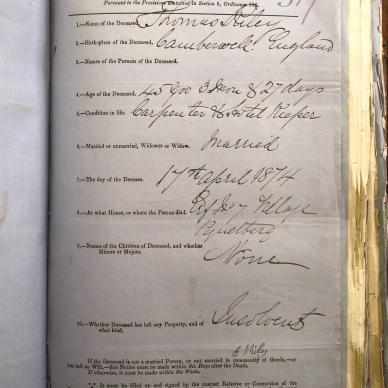 Pursuant to the Provisions contained in Section 9, Ordinance 104.
1.—Name of the Deceased. Thomas Riley
2.—Birth-place of the Deceased. Camberwell England
3.—Names of the Parents of the Deceased.
4.—Age of the Deceased. 45 yrs 3 Mon & 27 days
5.—Condition in life. Carpenter & Hotel Keeper
6.—Married or unmarried, Widower or Widow. Married
7.—The day of the Decease. 17th April 1874
8.—At what House, or where the Person died.
9.—Names of the Children of Deceased, and whether
Minors or Majors. None
10.—Whether Deceased has left any Property, and of
what kind. Insolvent
Riley
If the Deceased is not a married Person, or not married in community of Goods,—or
has left no Will,—this Notice must be made within Six Days after the Death.
If otherwise, it must be made within Six Weeks.
It must be filled up and signed by the nearest Relative or Connection of the